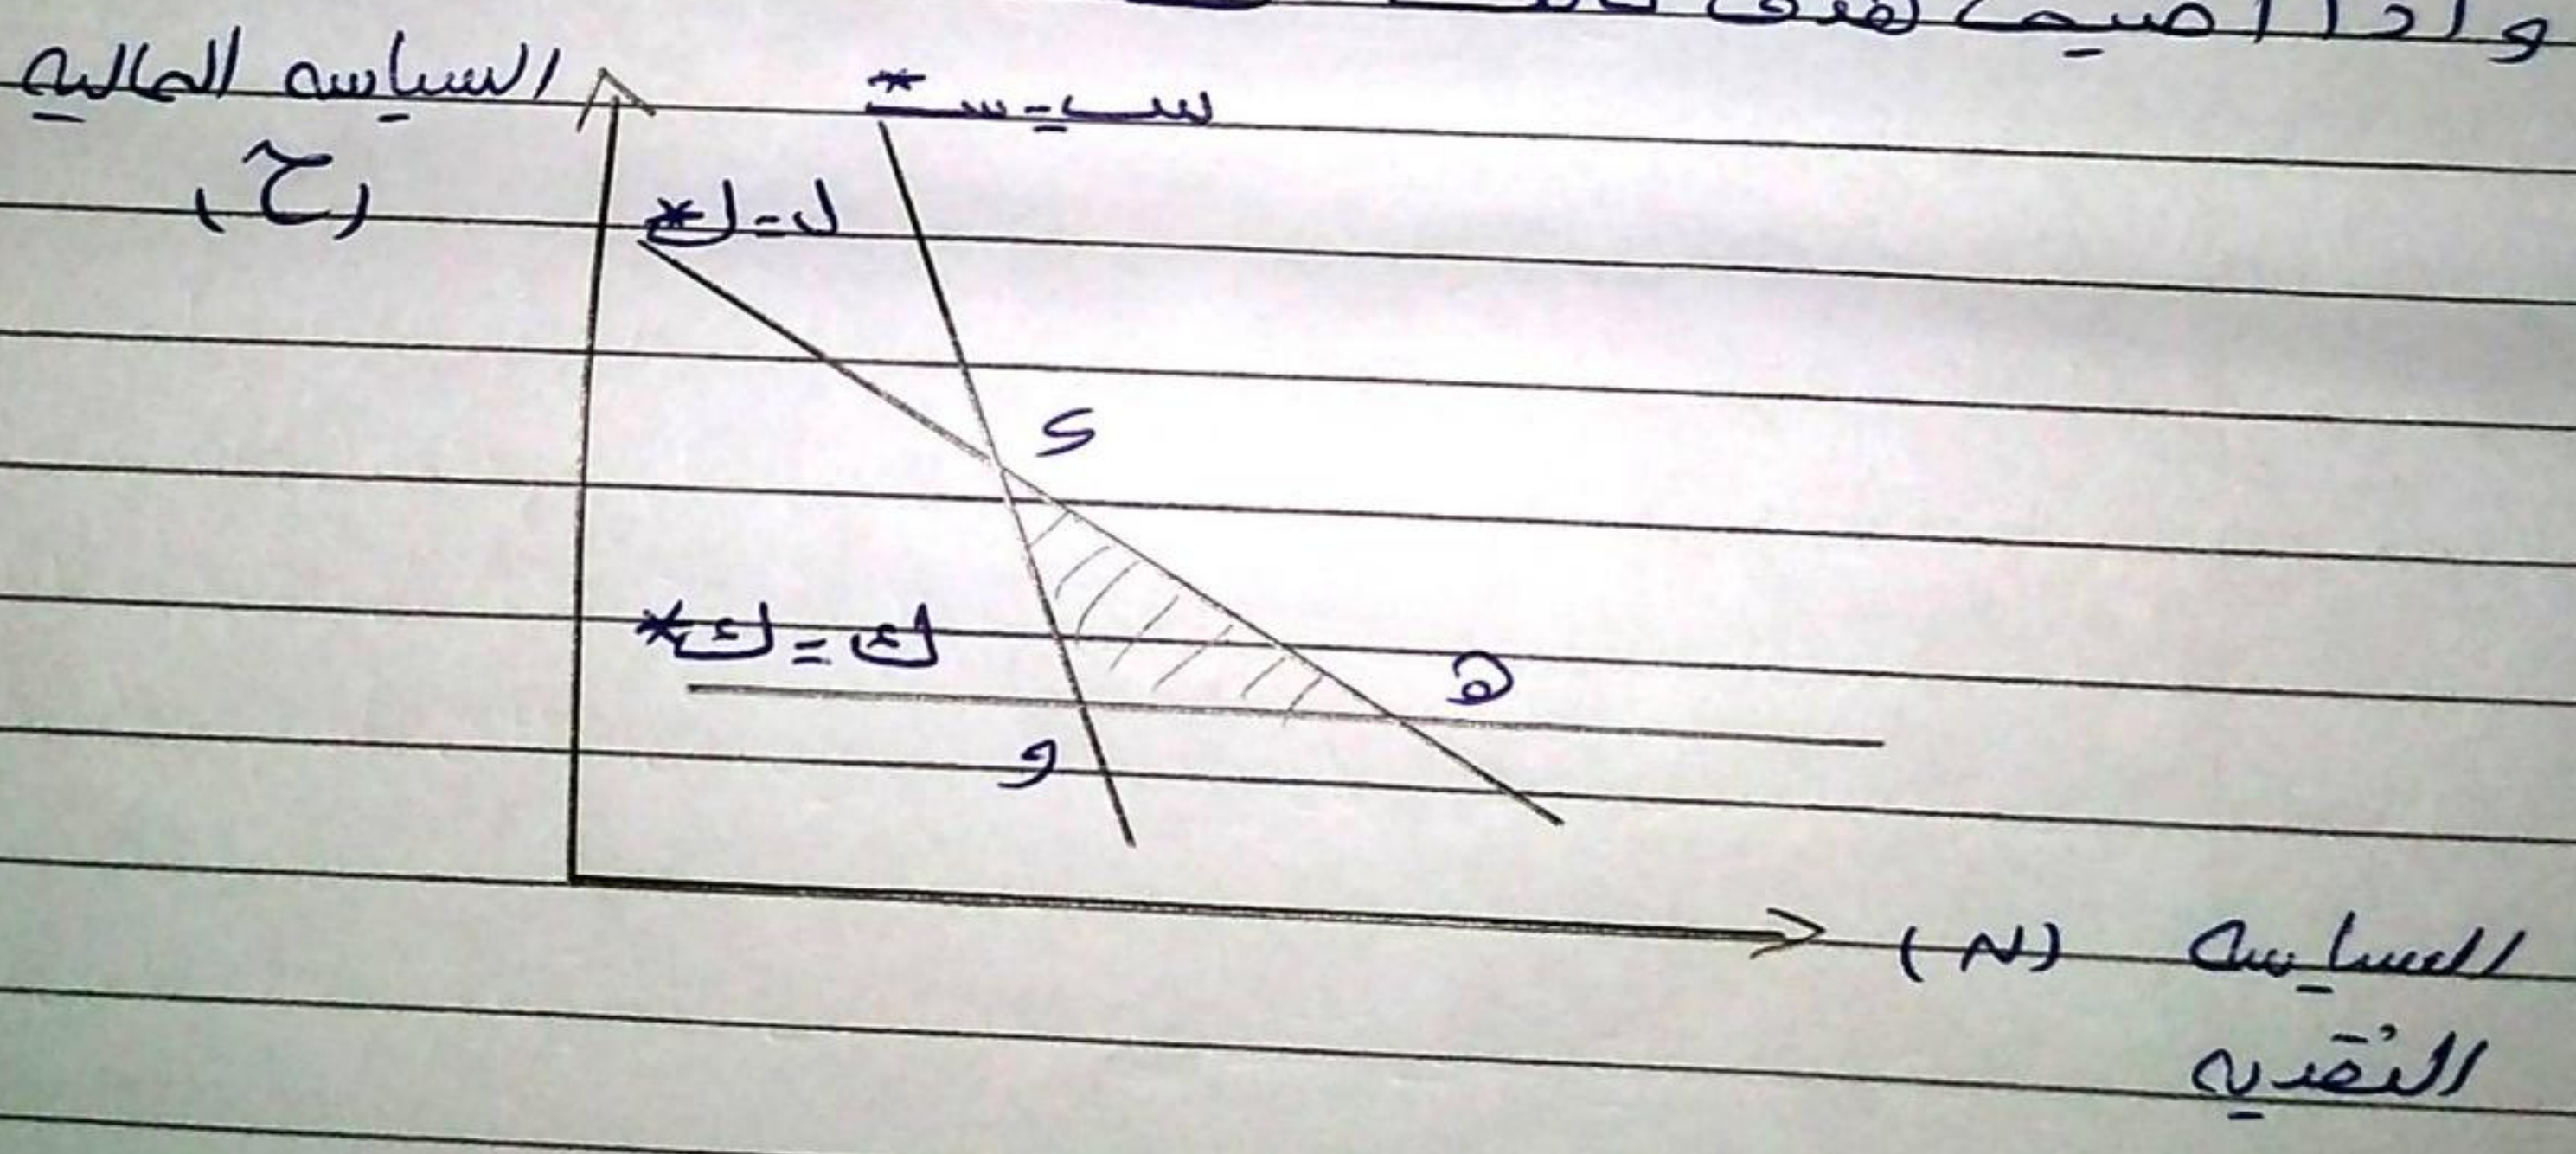 واذا اصبح هدف
السياسه الماليه
(ح)
س = س*
ل = ل*
د
ك = ك*
ه
و
السياسه (ن)
النقديه